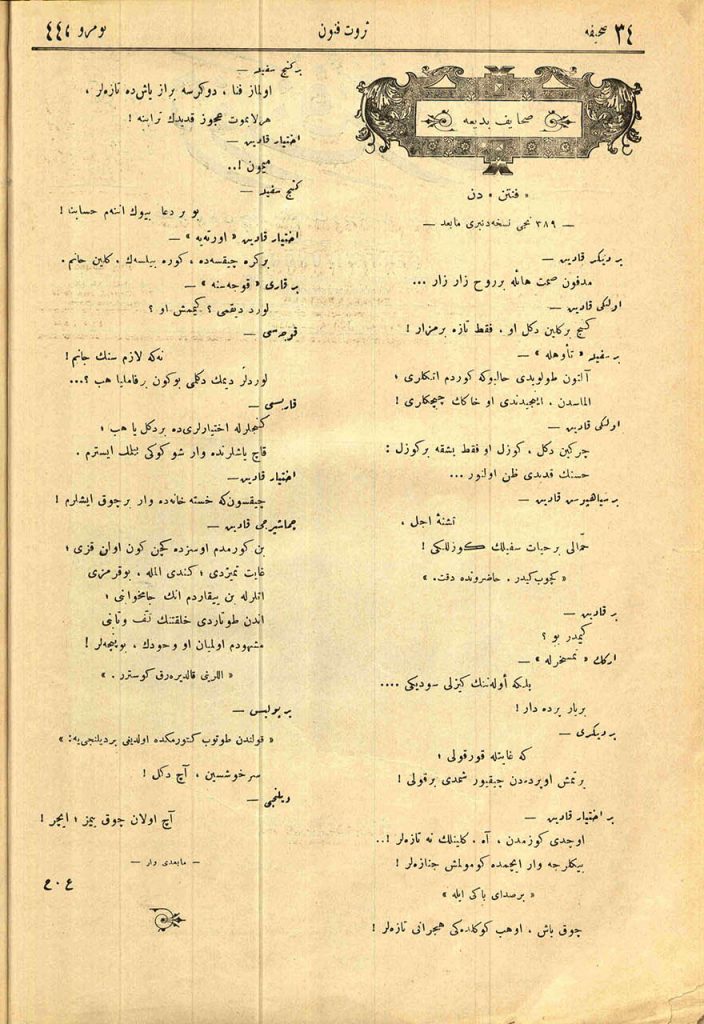 ٣٤ صحیفه
ثروت فنون
نومرو ٤٤٢
صحایف بدیعه
« فنتن » دن
— ٣٨٩ نجی نسخه‌دنبری مابعد —
بر دیکر قادین —
مدفون صمت هائله بر روح زار زار ...
اولکی قادین —
کنج بر کلین دکل او ، فقط تازه بر مزار !
بر سفیه « تأوهله » —
آلتون طولویدی حالبوکه کوردم اتکلری ؛
الماسدن ، اینجیدندی او خاکك چیچکلری !
اولکی قادین —
چرکین دکل ، کوزل او فقط بشقه بر کوزل :
حسنك قدیدی ظن اولنور ...
بر سیاهپرس قادین —
تشنهٔ اجل ،
حمالی بر حیات سفیلك کوزللکی !
« کچوب کیدر . حاضرونده دقت . »
بر قادین —
کیمدر بو ؟
ارکك « تمسخرله » —
بلکه أولەننك کیزلی سودیکی ....
بر یار پرده دار !
بر دیکری —
که غایتله قورقولی ؛
بر تمش اوپرەدن چیقیور شمدی بر قولی !
بر اختیار قادین —
اوچدی کوزمدن ، آه ، کلینلك نه تازه‌لر !..
بیکلرجه وار ایچمده کومولمش جنازه‌لر !
« بر صدای باکی ایله »
چوق یاش ، اوهب کوکلده‌کی هجرانی تازه‌لر !
بر کنج سفیه —
اولماز فنا ، دوکرسه براز یاش ده تازه‌لر ،
هر لایموت عجوز قدیدك ترابنه !
اختیار قادین —
میمون !..
کنج سفیه —
بو بر دعا بیوك اننەم حسابنا !
اختیار قادین « اورته‌یه » —
بر کره چیقسه‌ده ، کوره بیلسەك ، کلین خانم .
بر قاری « قوجه‌سنه » —
لورد دیقمی ؟ کیمش او ؟
قوجه‌سی —
نه‌که لازم سنك جانم !
لوردلر دیمك دکلمی بوکون بر فامیلیا هب ؟...
قاریسی —
کنجلرله اختیارلری‌ده بر دکل یا هب ؛
قاچ یاشلرنده وار شو کوکی بیلك ایسترم .
اختیار قادین —
چیقسون‌که خسته خانه‌ده وار بر چوق ایشلرم !
چماشیرجی قادین —
بن کورمدم اوسزده کچن کون اوان قزی ؛
غایت تمیزدی ؛ کندی المله ، بو قرمزی
اللرله بن ییقاردم انك جامخوابنی ؛
اندن طوتاردی خلقتنك تف و تابنی
مشهودم اولمیان او وجودك ، بو پنچه‌لر !
« اللرینی قالدیره‌رق کوسترر . »
بر پولیس —
« قولندن طوتوب کتورمکده اولدیغی بر دیلنجی‌یه : »
سرخوشسین ، آچ دکل !
دیلنجی —
آچ اولان چوق ییمز ؛ ایچر !
— مابعدی وار —
ع ٠ ح